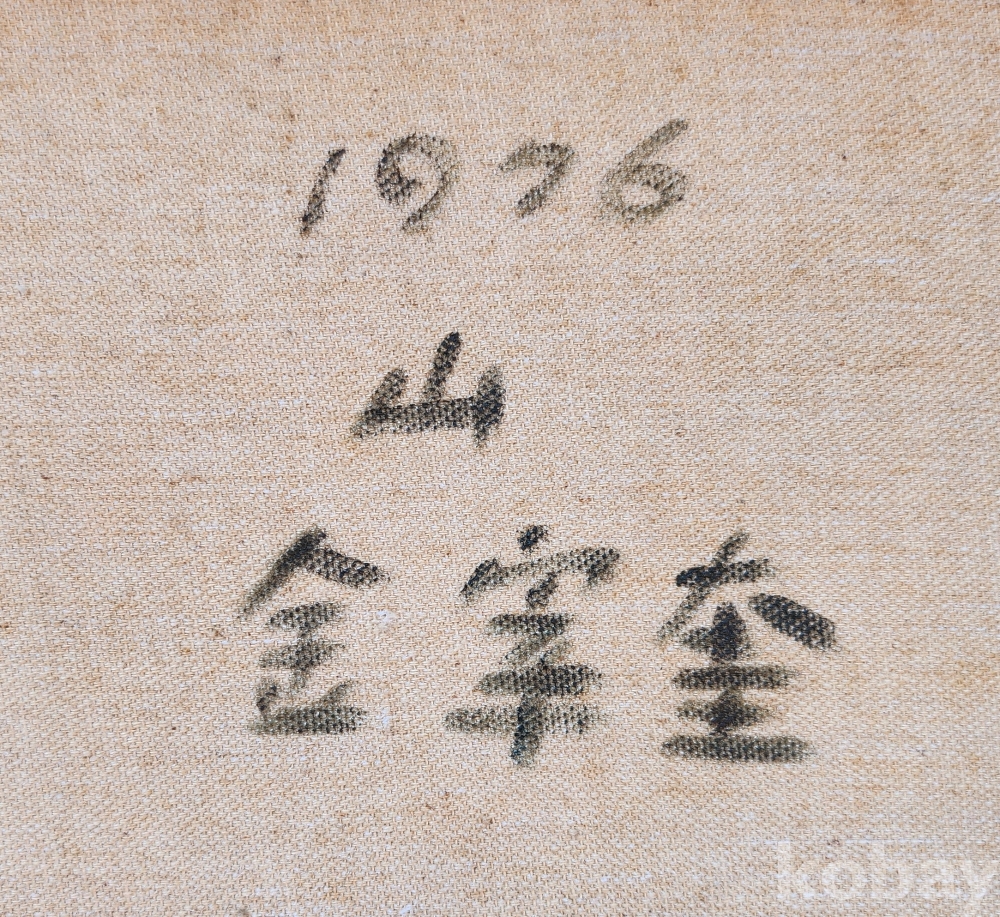 1976
山
金宰奎
kobay